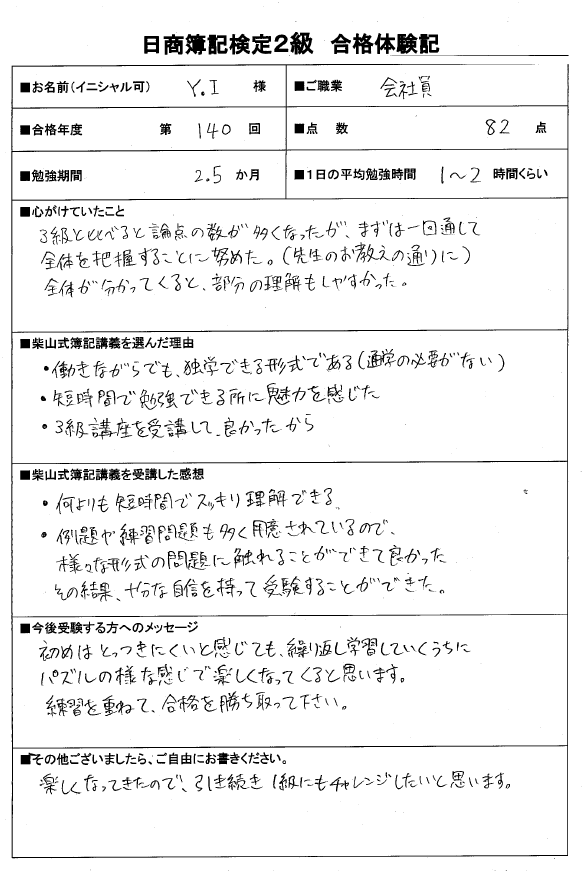 日商簿記検定2級 合格体験記
■お名前(イニシャル可) Y.I 様 ■ご職業 会社員
■合格年度 第 140 回 ■点 数 82 点
■勉強期間 2.5 か月 ■1日の平均勉強時間 1〜2 時間くらい
■心がけていたこと
3級と比べると論点の数が多くなったが、まずは一回通して
全体を把握することに努めた。(先生のお教えの通りに)
全体が分かってくると、部分の理解もしやすかった。
■柴山式簿記講義を選んだ理由
・働きながらでも、独学できる形式である(通学の必要がない)
・短時間で勉強できる所に魅力を感じた
・3級講座を受講して、良かったから
■柴山式簿記講義を受講した感想
・何よりも短時間でスッキリ理解できる。
・例題や練習問題も多く用意されているので、
様々な形式の問題に触れることができて良かった
その結果、十分な自信を持って受験することができた。
■今後受験する方へのメッセージ
初めはとっつきにくいと感じても、繰り返し学習していくうちに
パズルの様な感じで楽しくなってくると思います。
練習を重ねて、合格を勝ち取って下さい。
■その他ございましたら、ご自由にお書きください。
楽しくなってきたので、引き続き1級にもチャレンジしたいと思います。